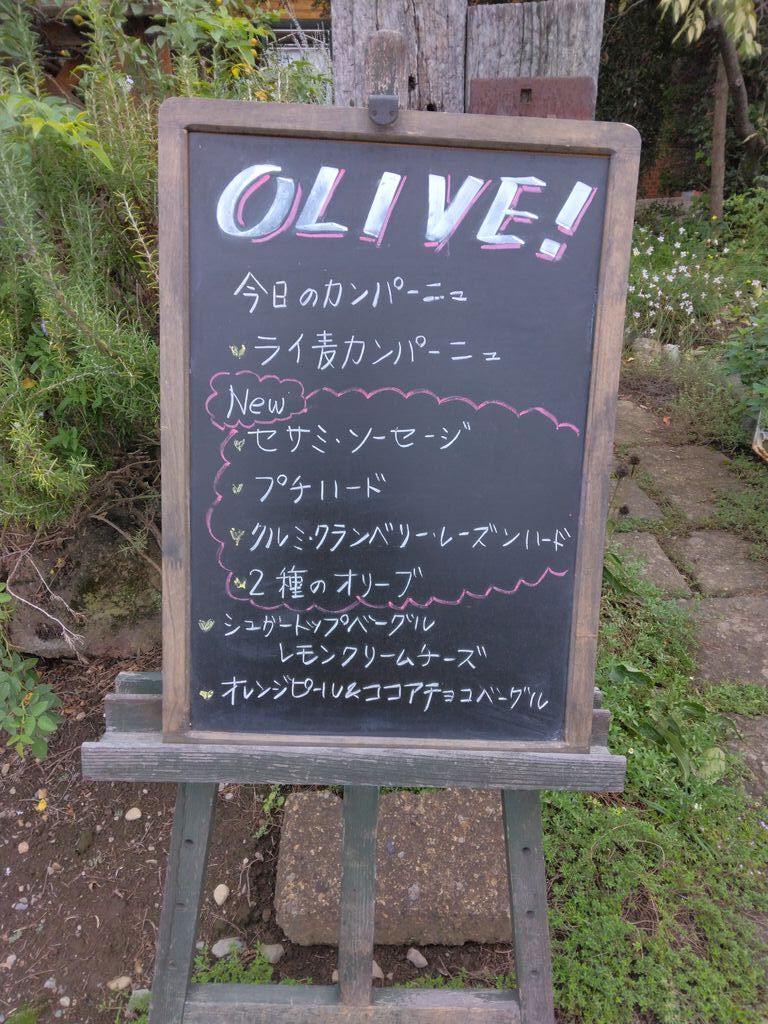 OLIVE!
今日のカンパーニュ
ライ麦カンパーニュ
New
セサミ・ソーセージ
プチハード
クルミ・クランベリー・レーズンハード
2種のオリーブ
シュガートップベーグル
レモンクリームチーズ
オレンジピール&ココアチョコベーグル